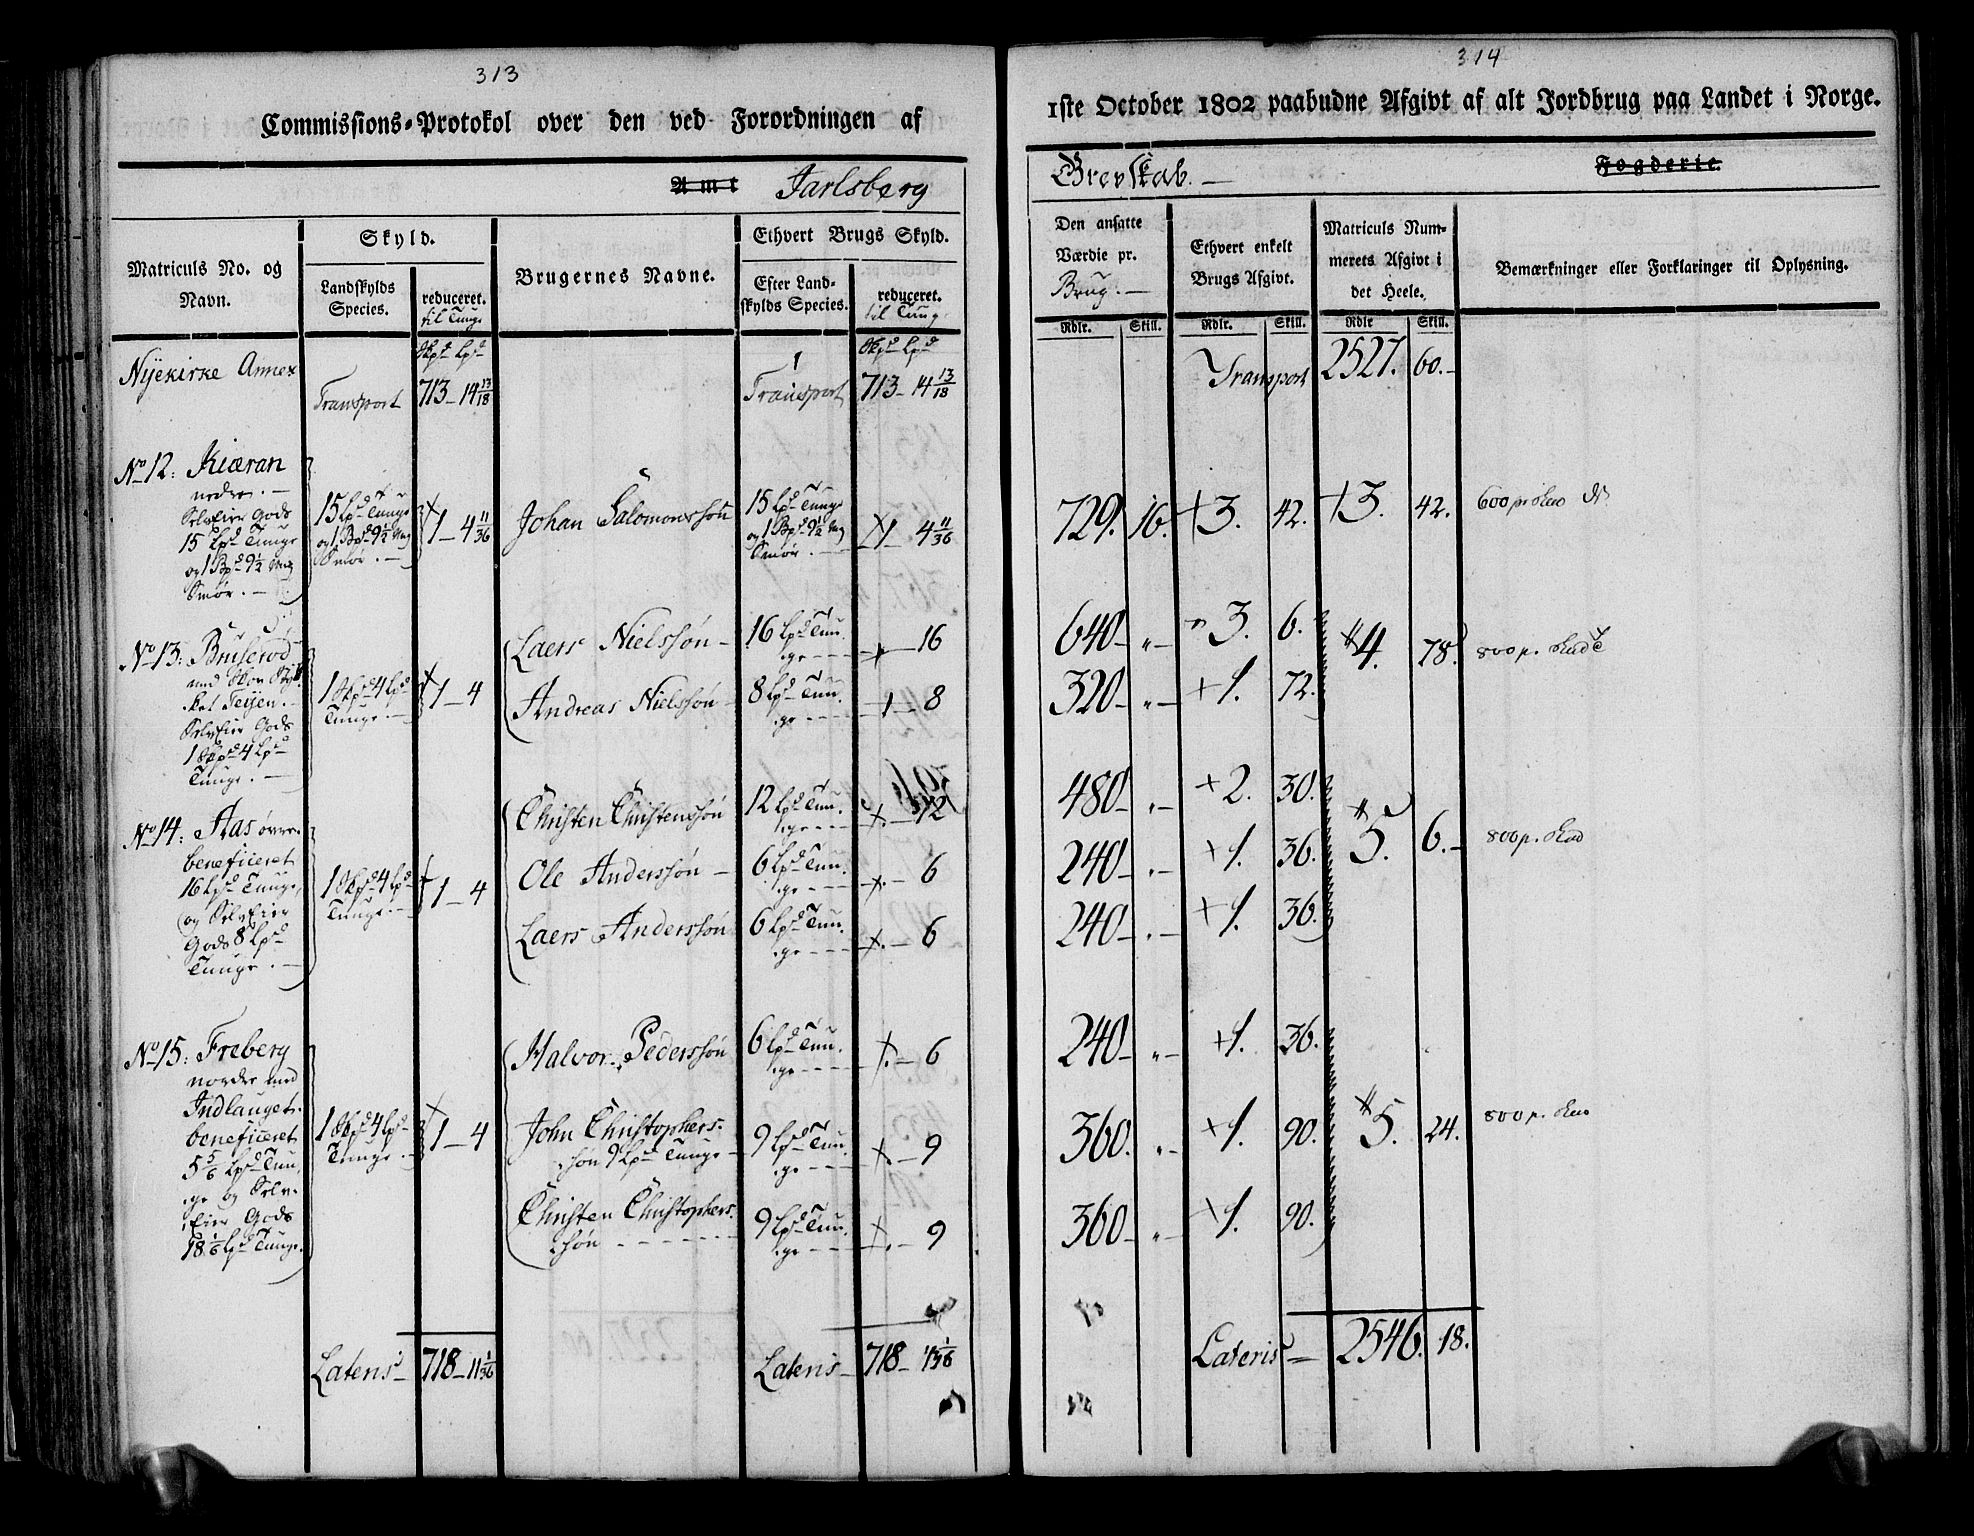 313
Commissions-Protokol over den ved Forordningen af
Amt Jarlsberg
Matriculs No. og Navn.
Skyld.
Landskylds Species.
reduceret. til Tunge
Brugernes Navne.
Ethvert Brugs Skyld.
Efter Landskylds Species.
reduceret. til Tung
Nyekirke Annex
Transport
Skpd Lpd
713 - 14 13/18
Transport
Skpd Lpd
713 - 14 13/18
No 12: Kiæran
nedre. -
SelvEier Gods
15 Lpd Tunge
og 1 Bpd 9½ Mrk
Smør. -
15 Lpd Tunge
og 1 Bpd 9½ Mrk
Smør. -
1 - 4 11/36
Johan Salomonssøn
15 Lpd Tunge
og 1 Bpd 9½ Mrk
Smør. -
1 - 4 11/36
No 13: Bruserød
med
ket Teijen. -
SelvEier Gods
1 Skpd 4 Lpd
Tunge. -
1 Skpd 4 Lpd
Tunge. -
1 - 4
Laers Nielssøn -
16 Lpd Tun-
ge - - -
16
Andreas Nielssøn -
8 Lpd Tun-
ge - - -
8
No 14: Aas øvre.
beneficeret
16 Lpd Tunge,
og SelvEier
Gods 8 Lpd
Tunge. -
1 Skpd 4 Lpd
Tunge. -
1 - 4
Christen Christenssøn
12 Lpd Tun-
ge - - -
12
Ole Anderssøn -
6 Lpd Tun-
ge - - -
6
Laers Anderssøn
6 Lpd Tun-
ge - - -
6
No 15: Freberg
nordre med
Indlauget.
beneficeret
5 5/6 Lpd Tun-
ge og Selv-
Eier Gods
18 1/6 Lpd Tunge.
1 Skpd 4 Lpd
Tunge. -
1 - 4
Halvor Pederssøn
6 Lpd Tun-
ge - - -
6
John Christophers-
søn 9 Lpd Tunge -
9 Lpd Tun-
ge - - -
9
Christen Christophers-
søn - - -
9 Lpd Tun-
ge - - -
9
Lateris 718 - 11 1/36
Lateris - 718 - 11 1/36
314
1ste October 1802 paabudne Afgivt af alt Jordbrug paa Landet i Norge.
Grevskab. -
Fogderie.
Den ansatte Værdie pr. Brug. -
Ethvert enkelt Brugs Afgivt.
Matriculs Nummerets Afgivt i det Heele.
Bemærkninger eller Forklaringer til Oplysning.
Rdlr. Skill. Rdlr. Skill. Rdlr Skill.
Transport 2527. 60. -
729. 16. + 3. 42. + 3. 42. 600 pr
640 - " - 3. 6.
4. 78. 800 p.
320 - " - + 1. 72.
480 - " - + 2. 30.
240 - " - + 1. 36. 5. 6. - 800 p.
240 - " - + 1. 36.
240 - " - + 1. 36.
360. " - + 1. 90. 5. 24. 800 p.
360 - " - + 1. 90.
Lateris = 2546. 18.